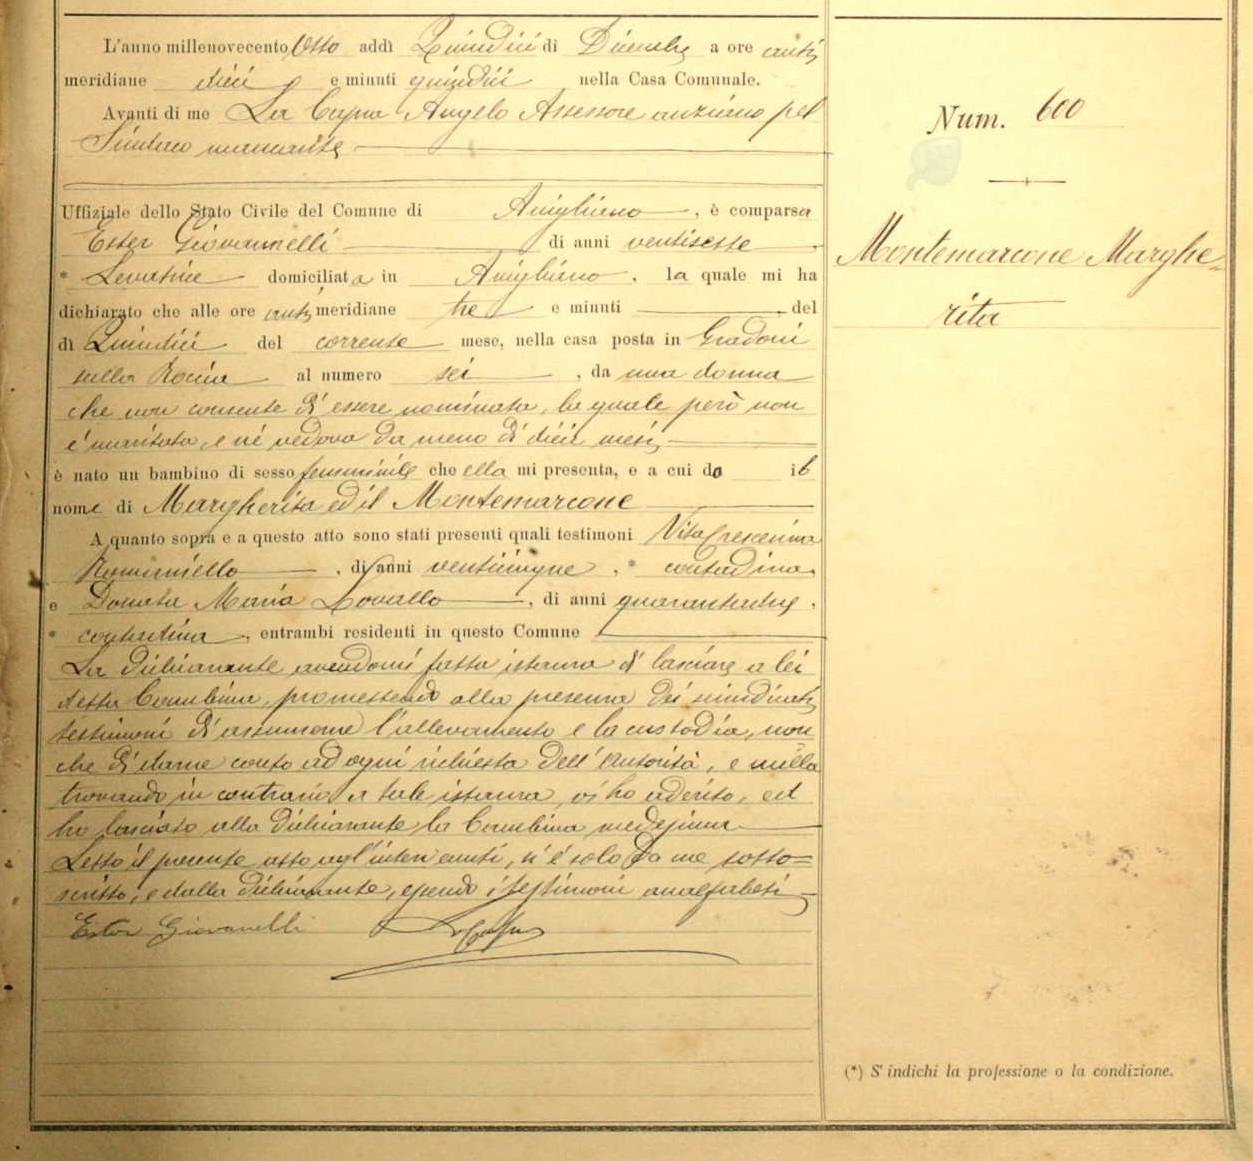 L'anno millenovecento Otto addì Quindici di Dicembre a ore anti
meridiane dieci e minuti quindici, nella Casa Comunale.
Avanti di me La Capra Angelo Assessore anziano pel
Sindaco mancante
Uffiziale dello Stato Civile del Comune di Avigliano, è comparsa
Ester Giovannelli di anni ventisette,
* Levatrice domiciliata in Avigliano, la quale mi ha
dichiarato che alle ore antimeridiane tre e minuti, del
dì Quindici del corrente mese, nella casa posta in Gradoni
sulla al numero sei, da una donna
che non consente d'essere nominata, la quale però non
è maritata, e nè vedova da meno di dieci mesi
è nato un bambino di sesso femminile che ella mi presenta, e a cui do il
nome di Margherita ed il Montemarcone
A quanto sopra e a questo atto sono stati presenti quali testimoni Vita Crescenza
Romaniello, di anni venticinque, * contadina,
e Donata Maria Lovallo, di anni quarantatre,
* contadina, entrambi residenti in questo Comune
La dichiarante avendomi fatta istanza di lasciare a lei
detta bambina, promettendo alla presenza dei suindicati
testimoni di assumerne l'allevamento e la custodia, non
che di darne conto ad ogni richiesta dell'Autorità, e nulla
trovando in contrario a tale istanza, vi ho aderito, ed
ho lasciato alla dichiarante la bambina medesima
Letto il presente atto agl'intervenuti, s'è solo da me sotto=
scritto, e dalla dichiarante, essendo i testimoni analfabeti
Ester Giovanelli
Num. 600
Montemarcone Marghe=
rita
(*) S'indichi la professione o la condizione.